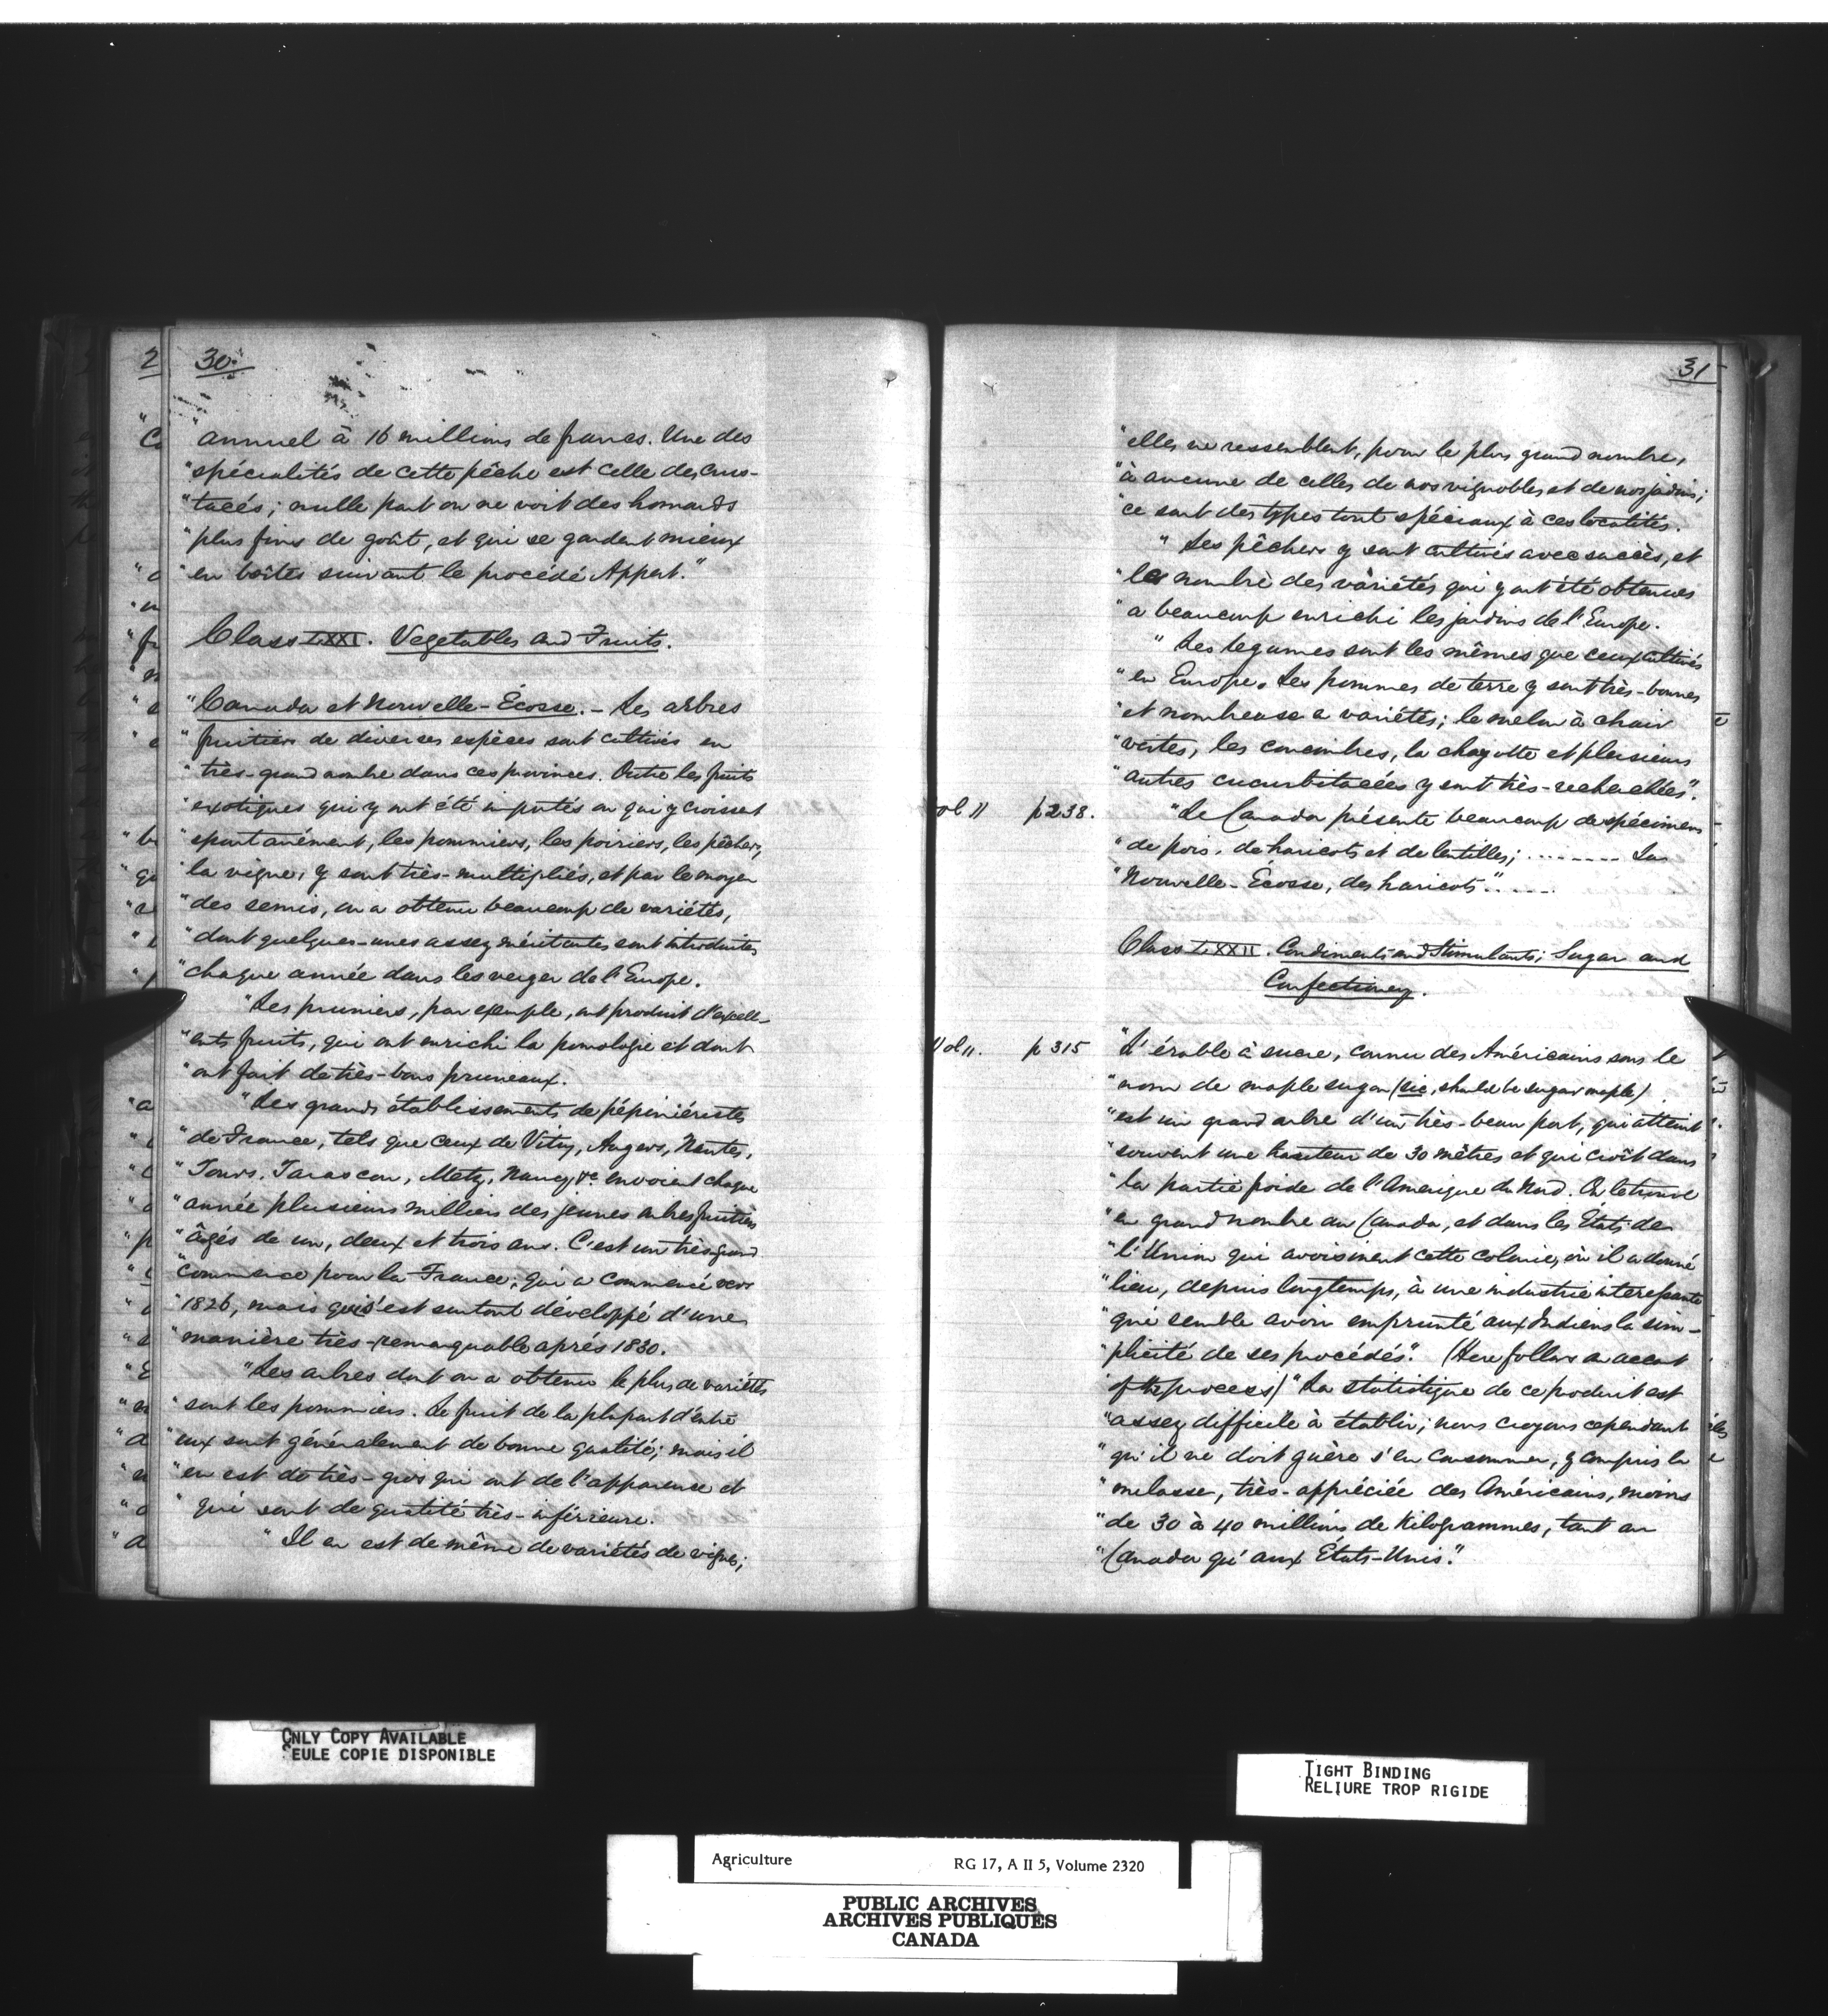 30.
"annuel à 16 millions de francs. Une des
"spécialités de cette pêche est celle des crus-
"tacés; nulle part on ne voit des homards
"plus fins de goût, et qui se gardent mieux
"en boîtes suivant le procédé Appert."
Class LXXI. Vegetables and Fruits.
"Canada et Nouvelle-Écosse. - Les arbres
"fruitiers de diverses espèces sont cultivés en
"très-grand nombre dans ces provinces. Outre les fruits
"exotiques qui y ont été importés ou qui y croissent
"spontanément, les pommiers, les poiriers, les pêchers,
"la vigne, y sont très-multipliés, et par le moyen
"des semis, on a obtenu beaucoup de variétés,
"dont quelques-unes assez méritantes sont introduites
"chaque année dans les verger de l'Europe.
"Les pruniers, par exemple, ont produit d'excell-
"ents fruits, qui ont enrichi la pomologie et dont
"ont fait de très-bons pruneaux.
"Les grands établissements de pépiniériste
"de France, tels que ceux de Vitry, Angers, Nantes,
"Tours, Tarascon, Metz, Nancy, &c. envoient chaque
"année plusieurs milliers des jeunes arbres fruitiers
"âgés de un, deux et trois ans. C'est un très grand
"commerce pour la France; qui a commencé vers
"1826, mais qui s'est surtout développé d'une
"manière très-remarquable aprés 1830.
"Les arbres dont on a obtenu le plus de variétés
"sont les pommiers. Le fruit de la plupart d'entre
"eux sont généralement de bonne qualité; mais il
"en est de très-gros qui ont de l'apparence et
"qui sont de qualité très-inférieure.
"Il en est de même de variétés de vigne;
31
"elles ne ressemblent, pour le plus grand nombre,
"à aucune de celles de nos vignobles et de nos jardins;
"ce sont des types tout spéciaux à ces localités.
"Les pêchers y sont cultivés avec succès, et
"les nombre des variétés qui y ont été obtenues
"a beaucoup enrichi les jardins de l'Europe.
"Les legumes sont les mêmes que ceux cultivés
"en Europe. Les pommes de terre y sont très-bonnes
"et nombreuse a variétés; le melon à chair
"vertes, les concombres, la chayotte et plusieurs
"autres cucurbitacées y sont très-recherchées".
Vol II p 238. "Le Canada présente beaucoup de spécimens
"de pois, de haricots et de lentilles; ........ La
"Nouvelle-Écosse, des haricots" .....
Class LXXII. Condiments and Stimulants; Sugar and
Confectionery.
Vol II. p 315 "L'érable à sucre, connu des Américains sous le
"nom de maple sugar (sic, should be sugar maple)
"est un grand arbre d'un très-beau port, qui atteint
"souvent une hauteur de 30 mêtres et qui croît dans
"la partie froide de l'Amerique du Nord. On le trouve
"en grand nombre au Canada, et dans les États de
"l'Union qui avoisinent cette colonie, où il a donné
"lieu, depuis longtemps, à une industrie interessante
"qui semble avoir emprunté aux Indiens la sim-
"plicité de ses procédés". (Here follows an account
of the process) "La statistique de ce produit est
"assez difficile à établir; nous croyons cependant
"qu'il ne doit guère s'en consommer, y compris la
"melasse, très-appréciée des Américains, moins
"de 30 à 40 millions de Kilogrammes, tant au
"Canada qu'aux États-Unis."
ONLY COPY AVAILABLE
SEULE COPIE DISPONIBLE
TIGHT BINDING
RELIURE TROP RIGIDE
Agriculture RG 17, A II 5, Volume 2320
PUBLIC ARCHIVES
ARCHIVES PUBLIQUES
CANADA